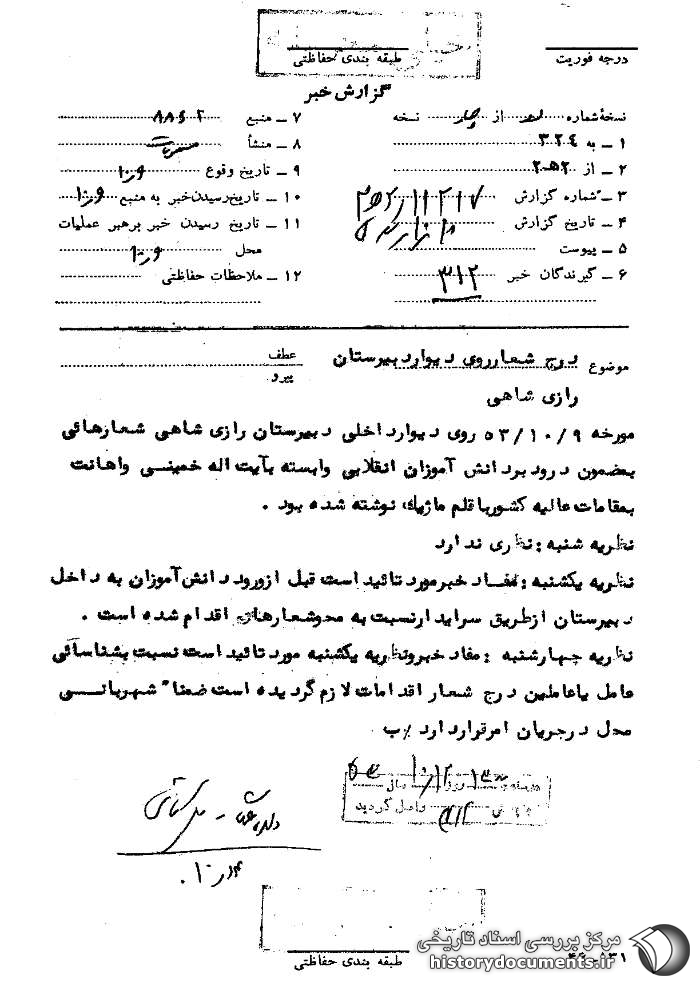 درجه فوریت
طبقه بندی حفاظتی
گزارش خبر
نسخهٔ شماره از نسخه
۱ ـ به ۳۲٤
۲ ـ از ۲ ه‍ ۲
۳ ـ شماره گزارش
۴ ـ تاریخ گزارش
۵ ـ پیوست
۶ ـ گیرندگان خبر ۳۱۲
۷ ـ منبع ۸۸٤۲
۸ ـ منشأ
۹ ـ تاریخ وقوع
۱۰ ـ تاریخ رسیدن خبر به منبع
۱۱ ـ تاریخ رسیدن خبر برهبر عملیات
محل
۱۲ ـ ملاحظات حفاظتی
موضوع درج شعار روی دیوار دبیرستان
رازی شاهی
عطف
پیرو
مورخه ۵۳/۱۰/۹ روی دیوار داخلی دبیرستان رازی شاهی شعارهائی
بمضمون درود بر دانش آموزان انقلابی وابسته بآیت اله خمینی و اهانت
بمقامات عالیه کشور با قلم ماژیک نوشته شده بود .
نظریه شنبه : نظری ندارد
نظریه یکشنبه : مفاد خبر مورد تائید است قبل از ورود دانش آموزان به داخل
دبیرستان از طریق سرایدار نسبت به محو شعارهای اقدام شده است .
نظریه چهارشنبه : مفاد خبر ونظریه یکشنبه مورد تائید است نسبت بشناسائی
عامل یا عاملین درج شعار اقدامات لازم گردیده است ضمنا" شهربانی
محل در جریان امر قرار دارد /ب
روز سال
واصل گردید
طبقه بندی حفاظتی
مرکز بررسی اسناد تاریخی
historydocuments.ir